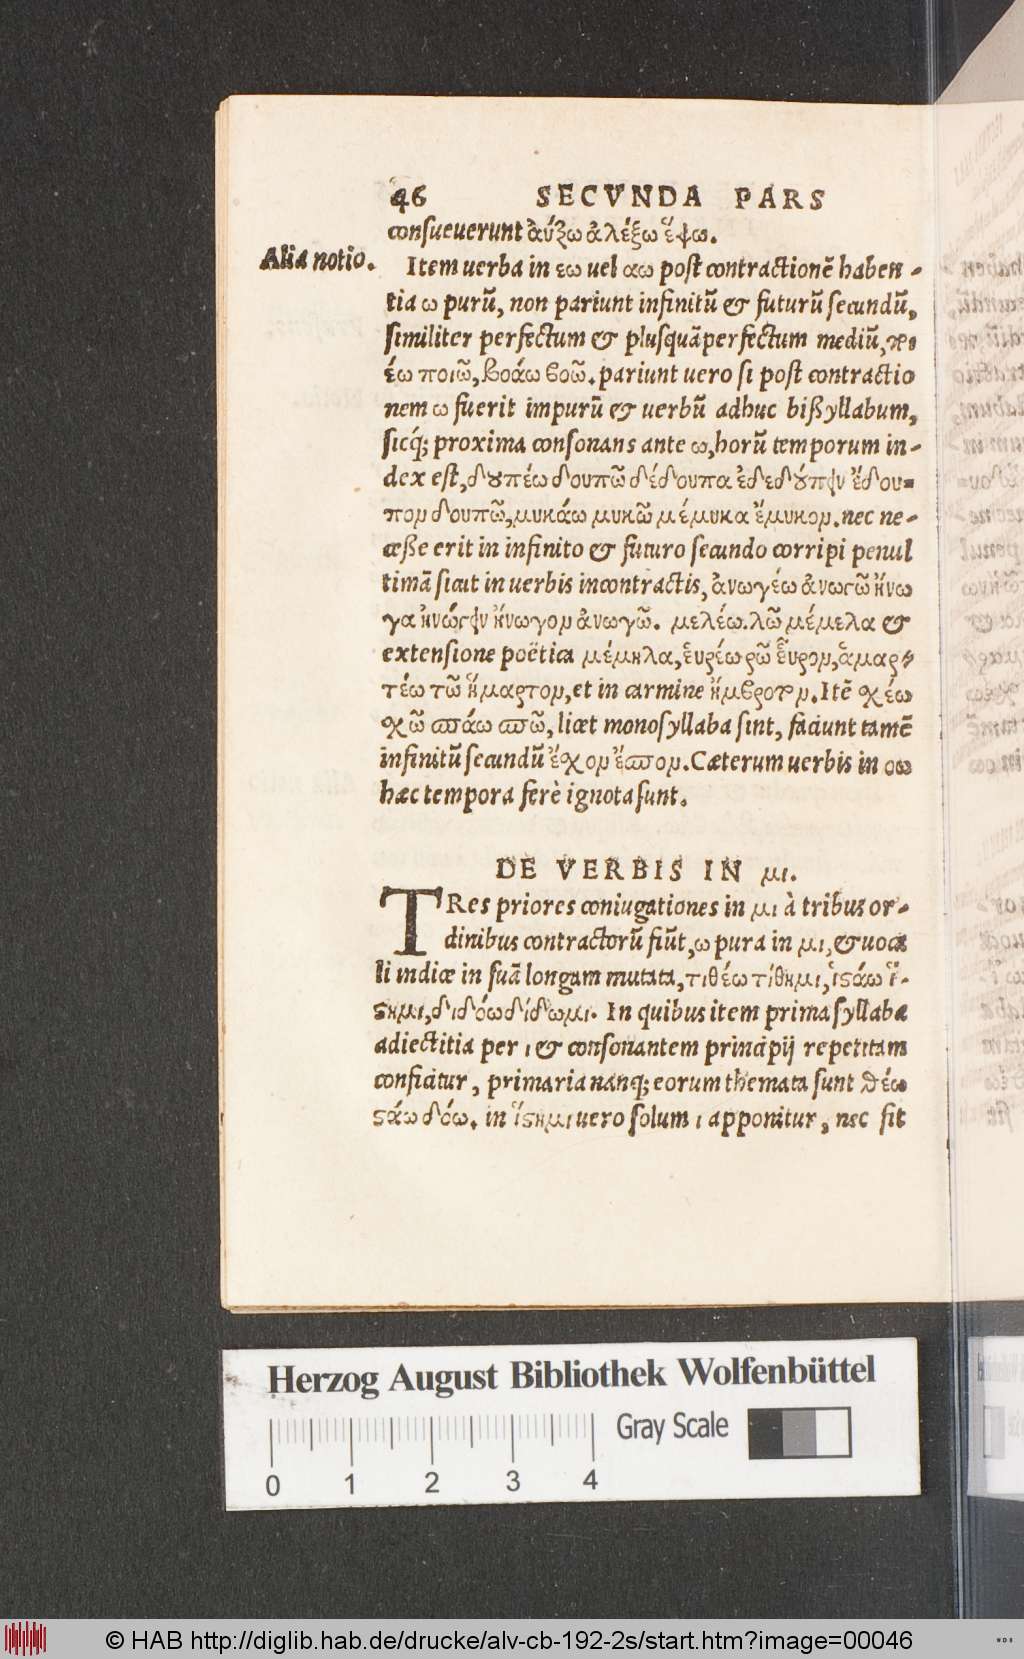 46 SECVNDA PARS
consueuerunt ἀύξω ἀλέξω ἕψω.
Alia notio.
Item uerba in εω uel αω post contractionē haben-
tia ω purū, non pariunt infinitū & futurū secundū,
similiter perfectum & plusquāperfectum mediū, ποι
έω ποιῶ, βοάω βοῶ. pariunt uero si post contractio
nem ω fuerit impurū & uerbū adhuc bißyllabum,
sicq́; proxima consonans ante ω, horū temporum in-
dex est, δουπέω δουπῶ δέδουπα ἐδεδούπειν ἔδου-
πον δουπῶ, μυκάω μυκῶ μέμυκα ἔμυκον. nec ne-
ceße erit in infinito & futuro secundo corripi penul
timā sicut in uerbis incontractis, ἀνωγέω ἀνωγῶ ἤνω
γα ἠνώγειν ἤνωγον ἀνωγῶ. μελέω. λῶ μέμελα &
extensione poëtica μέμηλα, ἑυρέω ρῶ ἕυρον, ἁμαρ-
τέω τῶ ἥμαρτον, et in carmine ἤμβροτον. Itē χέω
χῶ σπάω σπῶ, licet monosyllaba sint, faciunt tamē
infinitū secundū ἔχον ἔσπον. Cæterum uerbis in οω
hæc tempora ferè ignota sunt.
DE VERBIS IN μι.
TRes priores coniugationes in μι à tribus or-
dinibus contractorū fiūt, ω pura in μι, & uoca
li indice in suā longam mutata, τιθέω τίθημι, ἱστάω ἵ-
στημι, διδόω δίδωμι. In quibus item prima syllaba
adiectitia per ι & consonantem principij repetitam
conficitur, primaria nanq; eorum themata sunt θέω
στάω δόω. in ἵστημι uero solum ι apponitur, nec sit
Herzog August Bibliothek Wolfenbüttel
Gray Scale
0 1 2 3 4
© HAB http://diglib.hab.de/drucke/alv-cb-192-2s/start.htm?image=00046